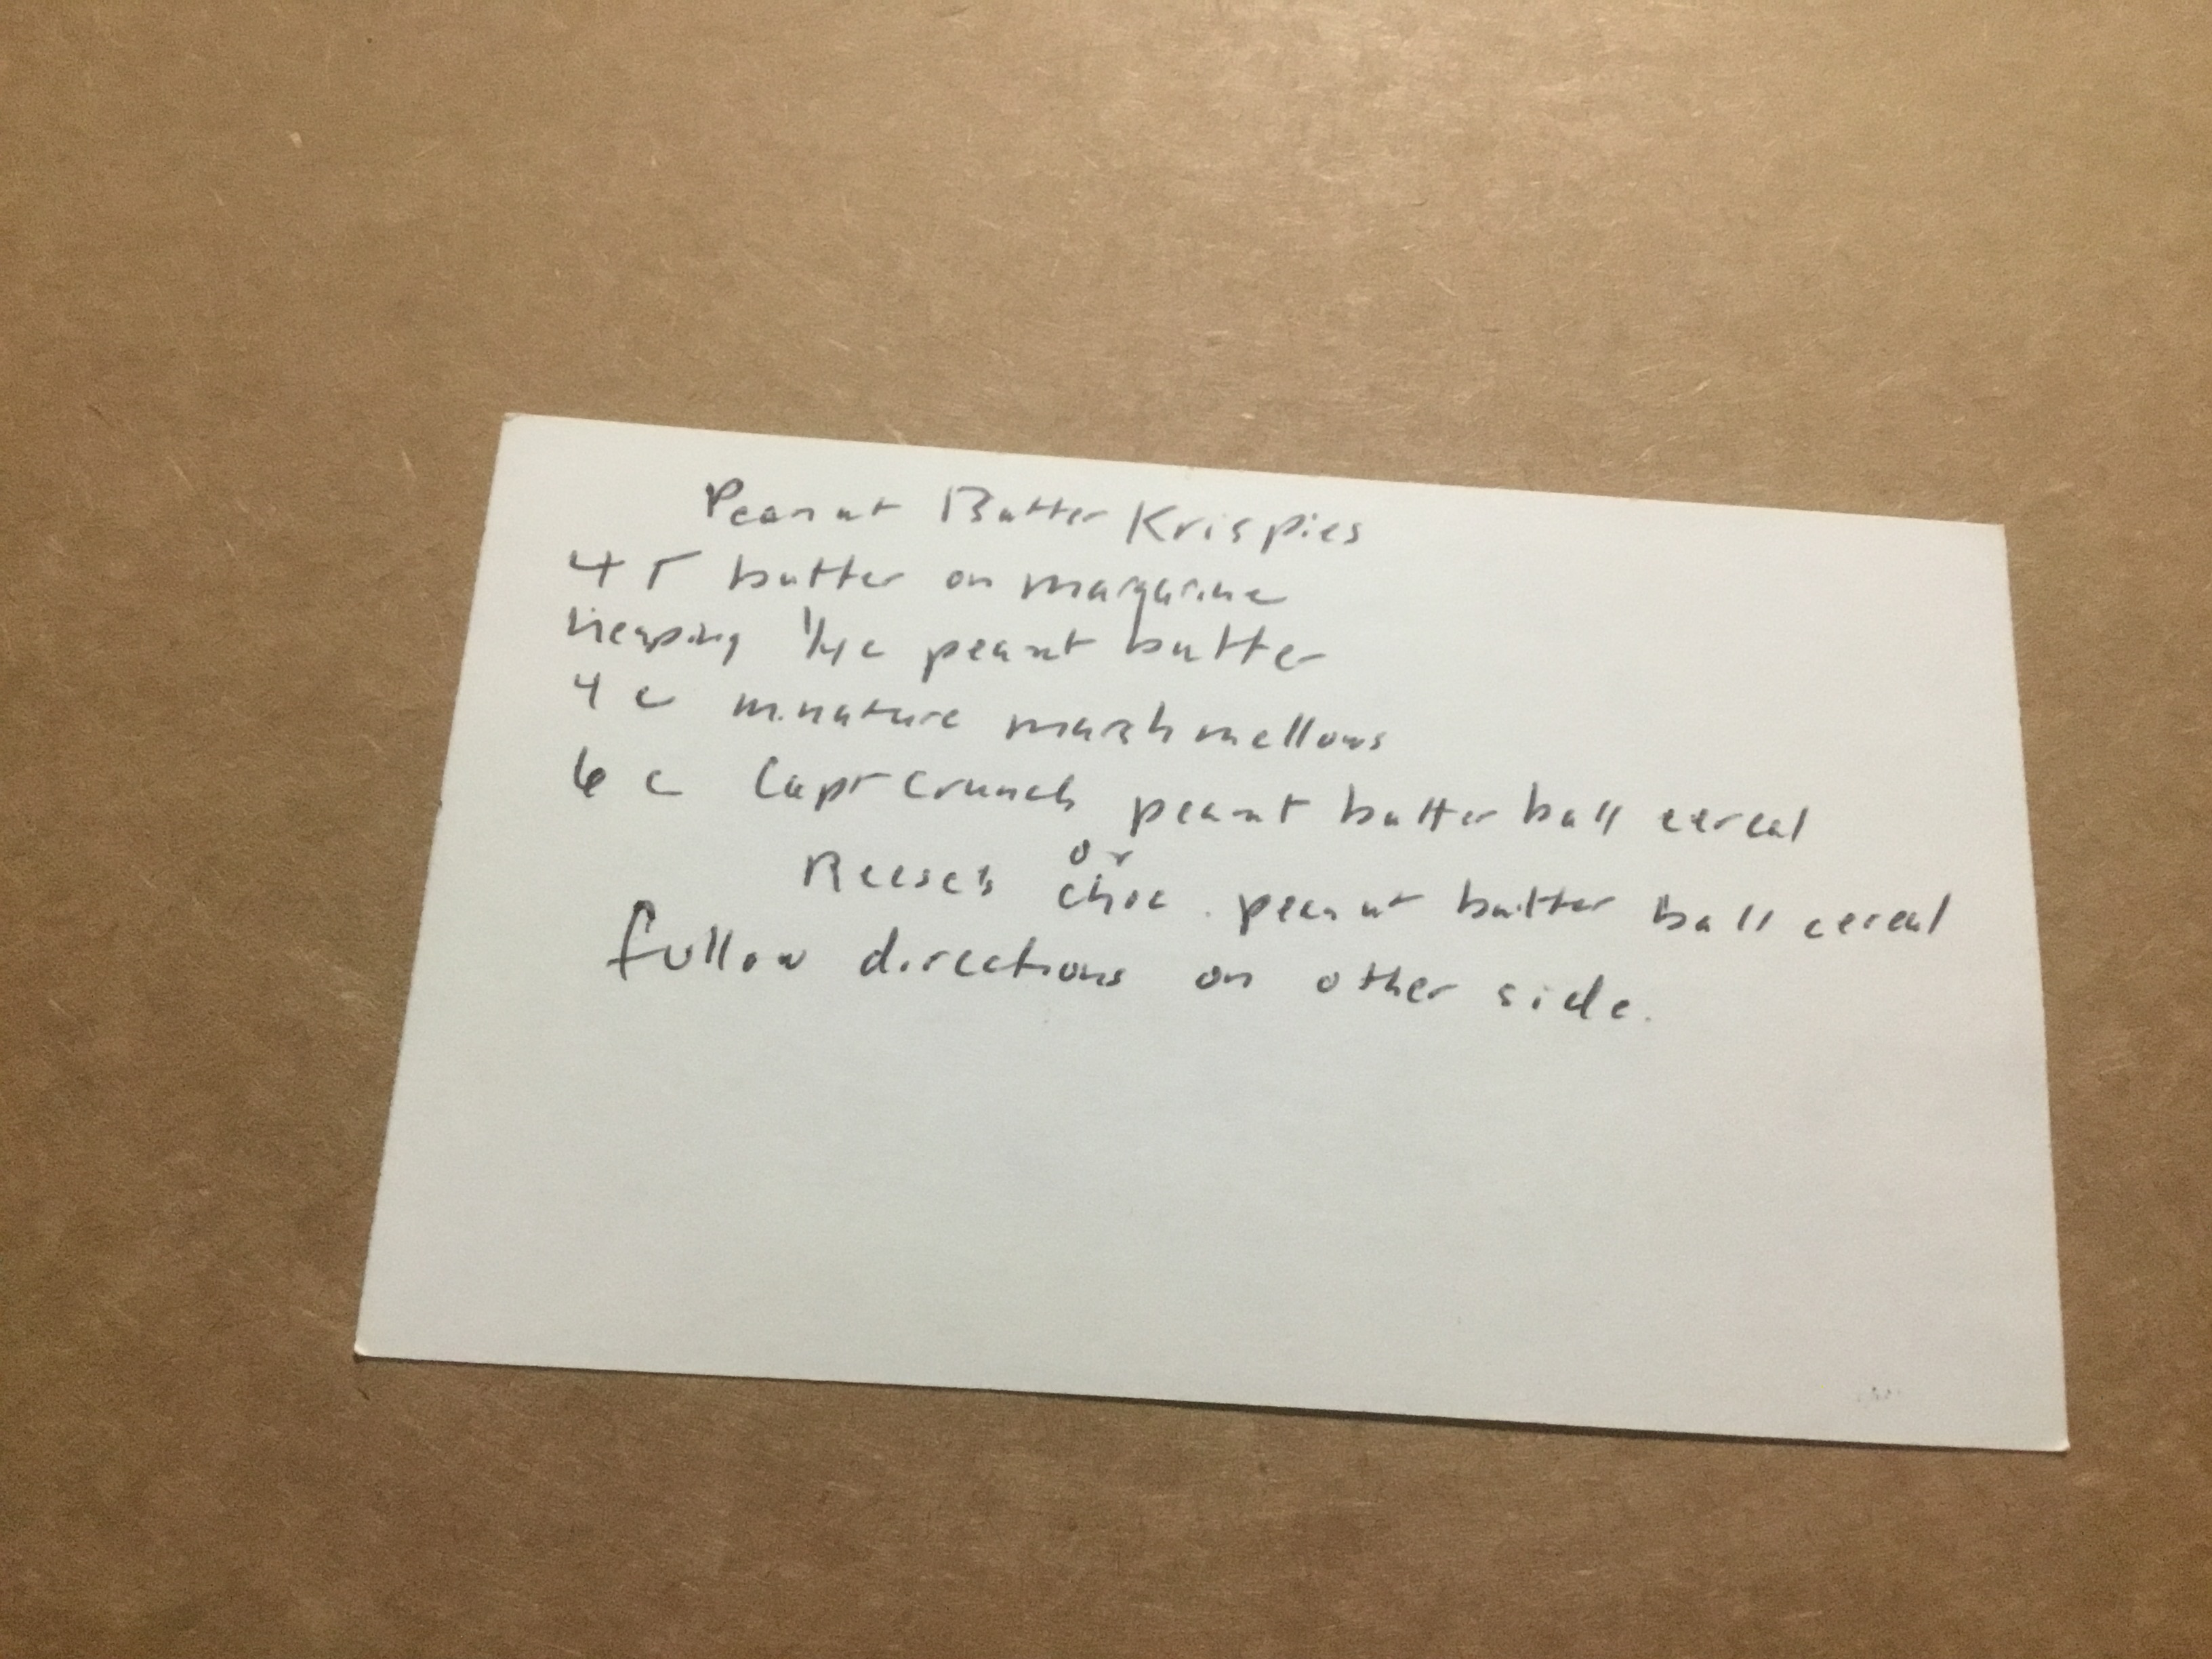 Peanut Butter Krispies
4 T butter or margarine
heaping 1/4 c peanut butter
4 c minature marshmellows
6 c Capt Crunch peanut butter ball cereal
or
Reese's choc. peanut butter ball cereal
follow directions on other side.